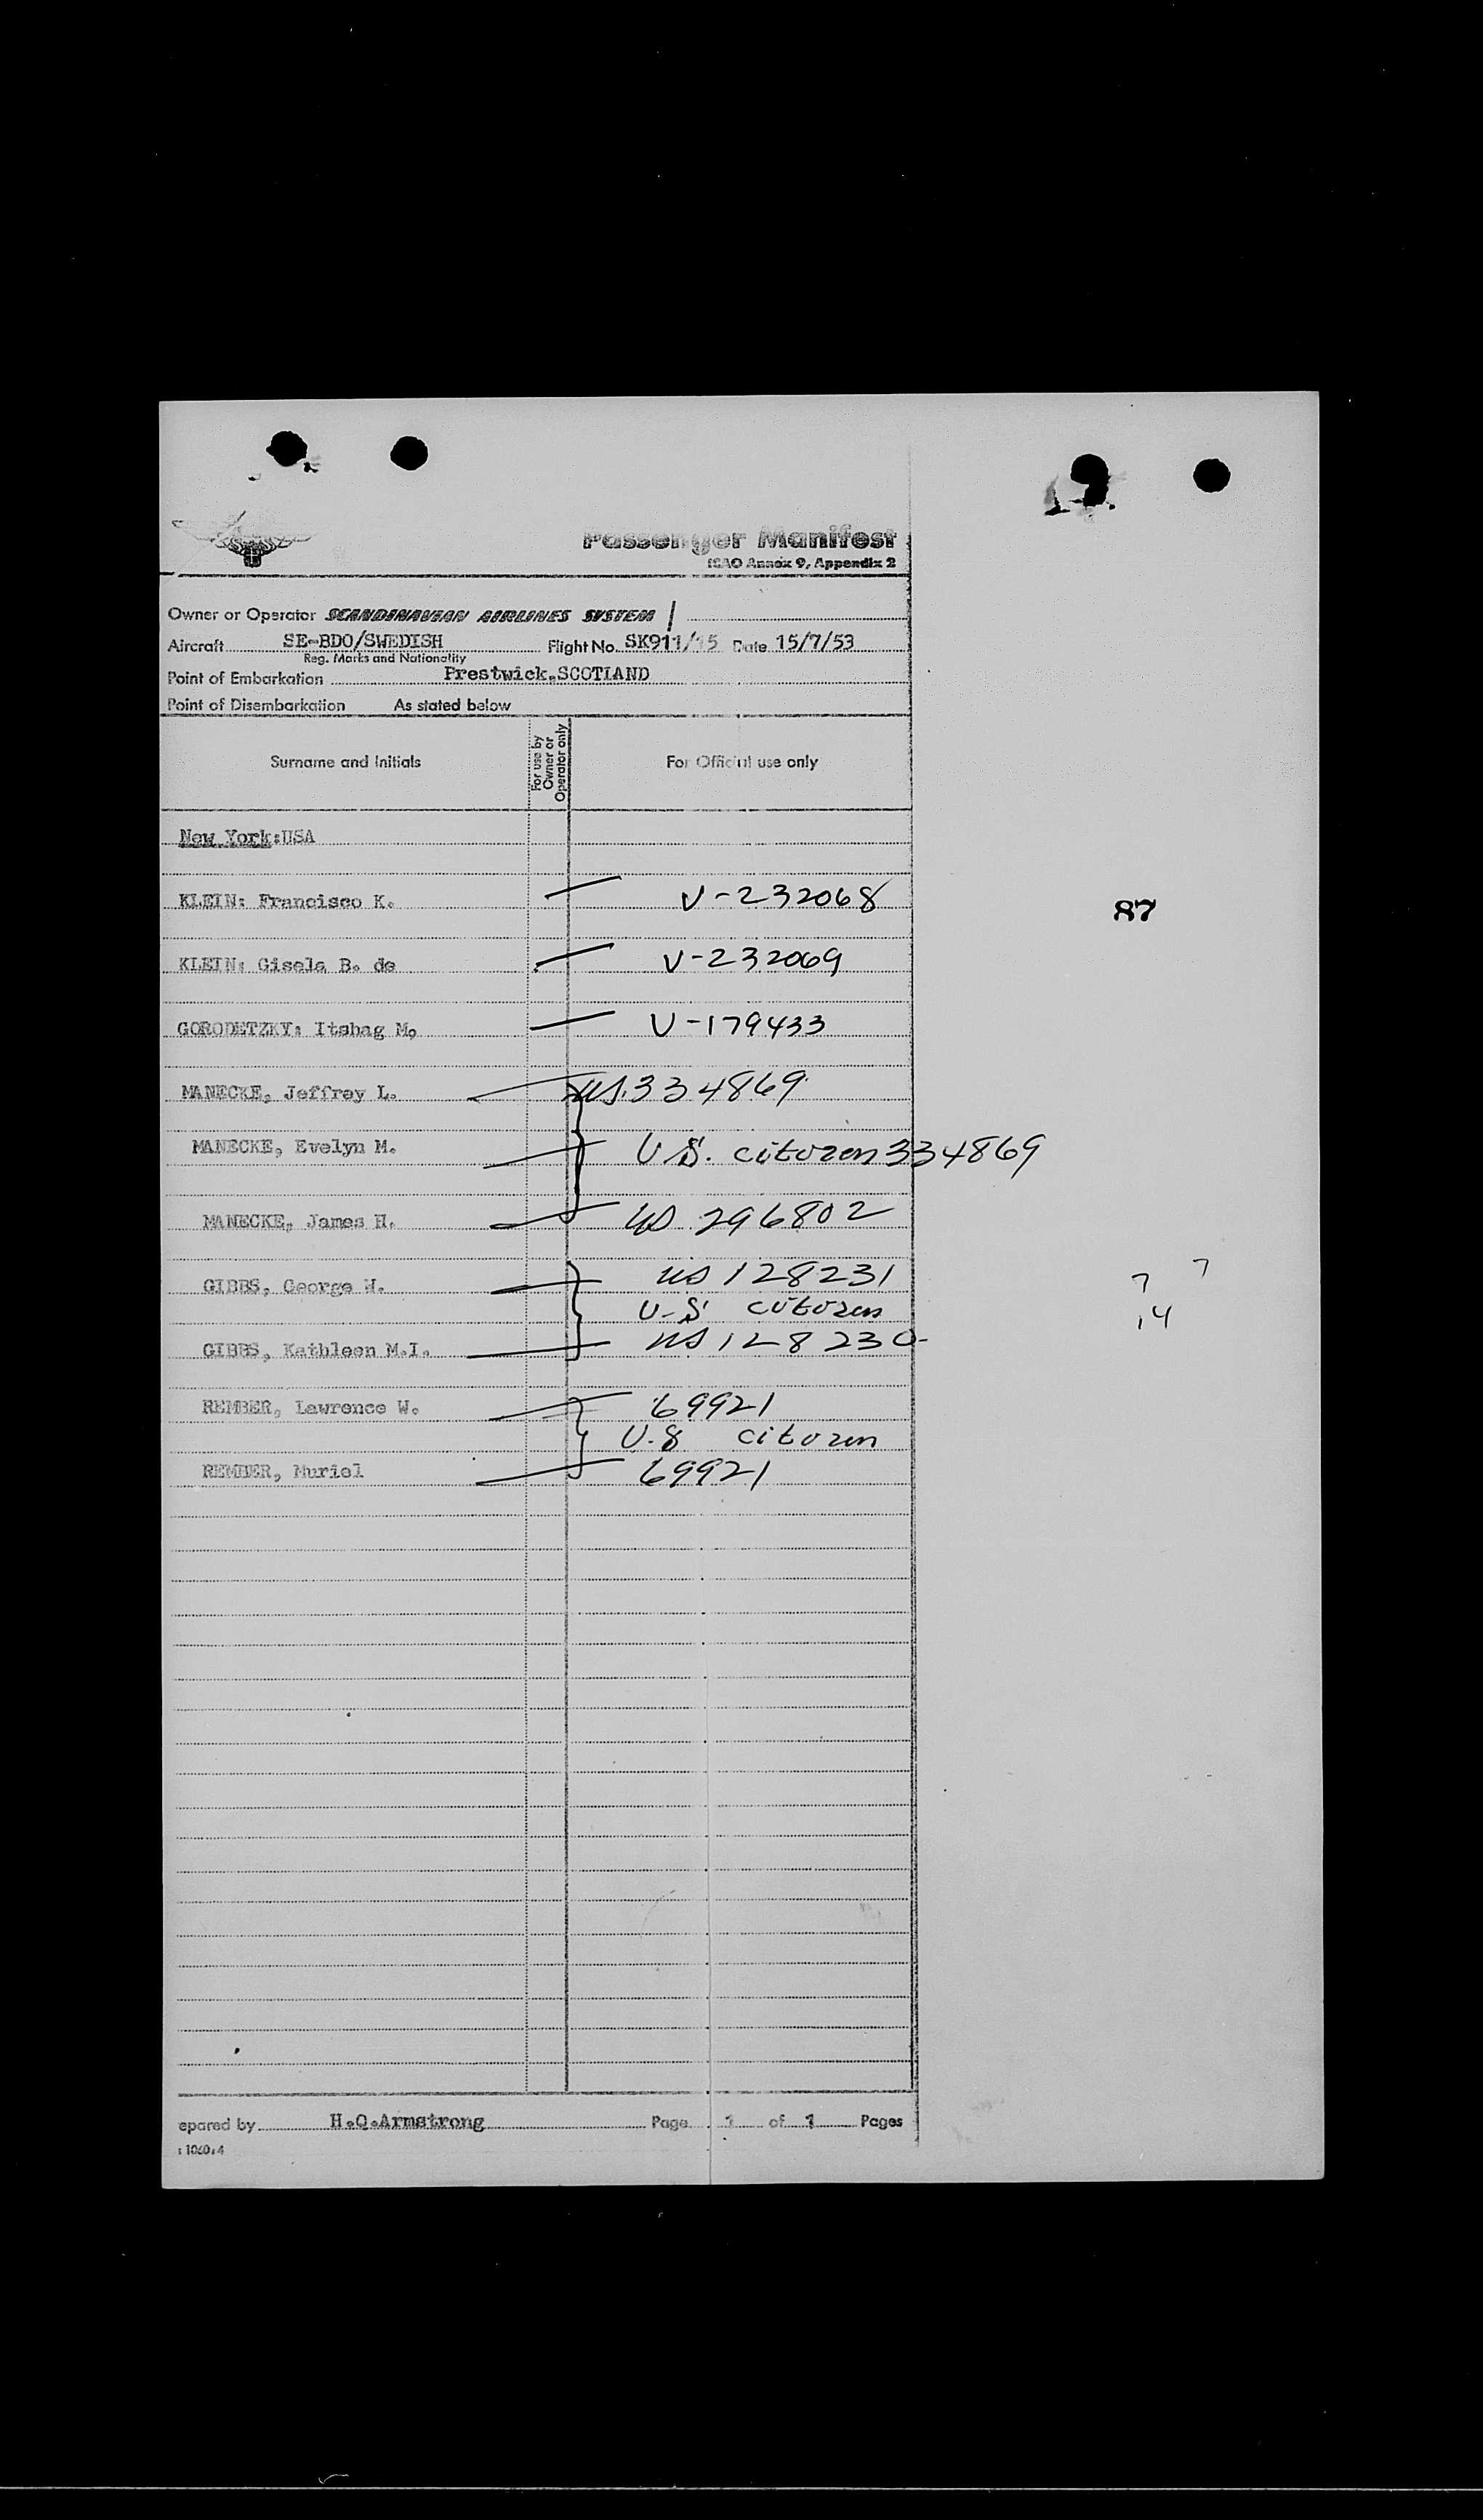 Passenger Manifest
ICAO Annex 9, Appendix 2
Owner or Operator SCANDINAVIAN AIRLINES SYSTEM
Aircraft SE-BDO/SWEDISH Flight No. SK911/15 Date 15/7/53
Reg. Marks and Nationality
Point of Embarkation Prestwick.SCOTLAND
Point of Disembarkation As stated below
Surname and Initials
For use by
Owner or
Operator only
For Official use only
New York:USA
KLEIN: Francisco K. V-232068
87
KLEIN: Gisela B. de V-232069
GORODETZKY: Itshag M, V-179433
MANECKE, Jeffrey L. US.334869
MANECKE, Evelyn M. U.S. citizen 334869
MANECKE, James H. US 296802
GIBBS, George W. US 128231
7 7
U-S citizen
14
GIBBS, Kathleen M.I. US 128230
REMBER, Lawrence W. 69921
U.S citizen
REMBER, Muriel 69921
epared by H.Q.Armstrong Page 1 of 1 Pages
: 1060:4